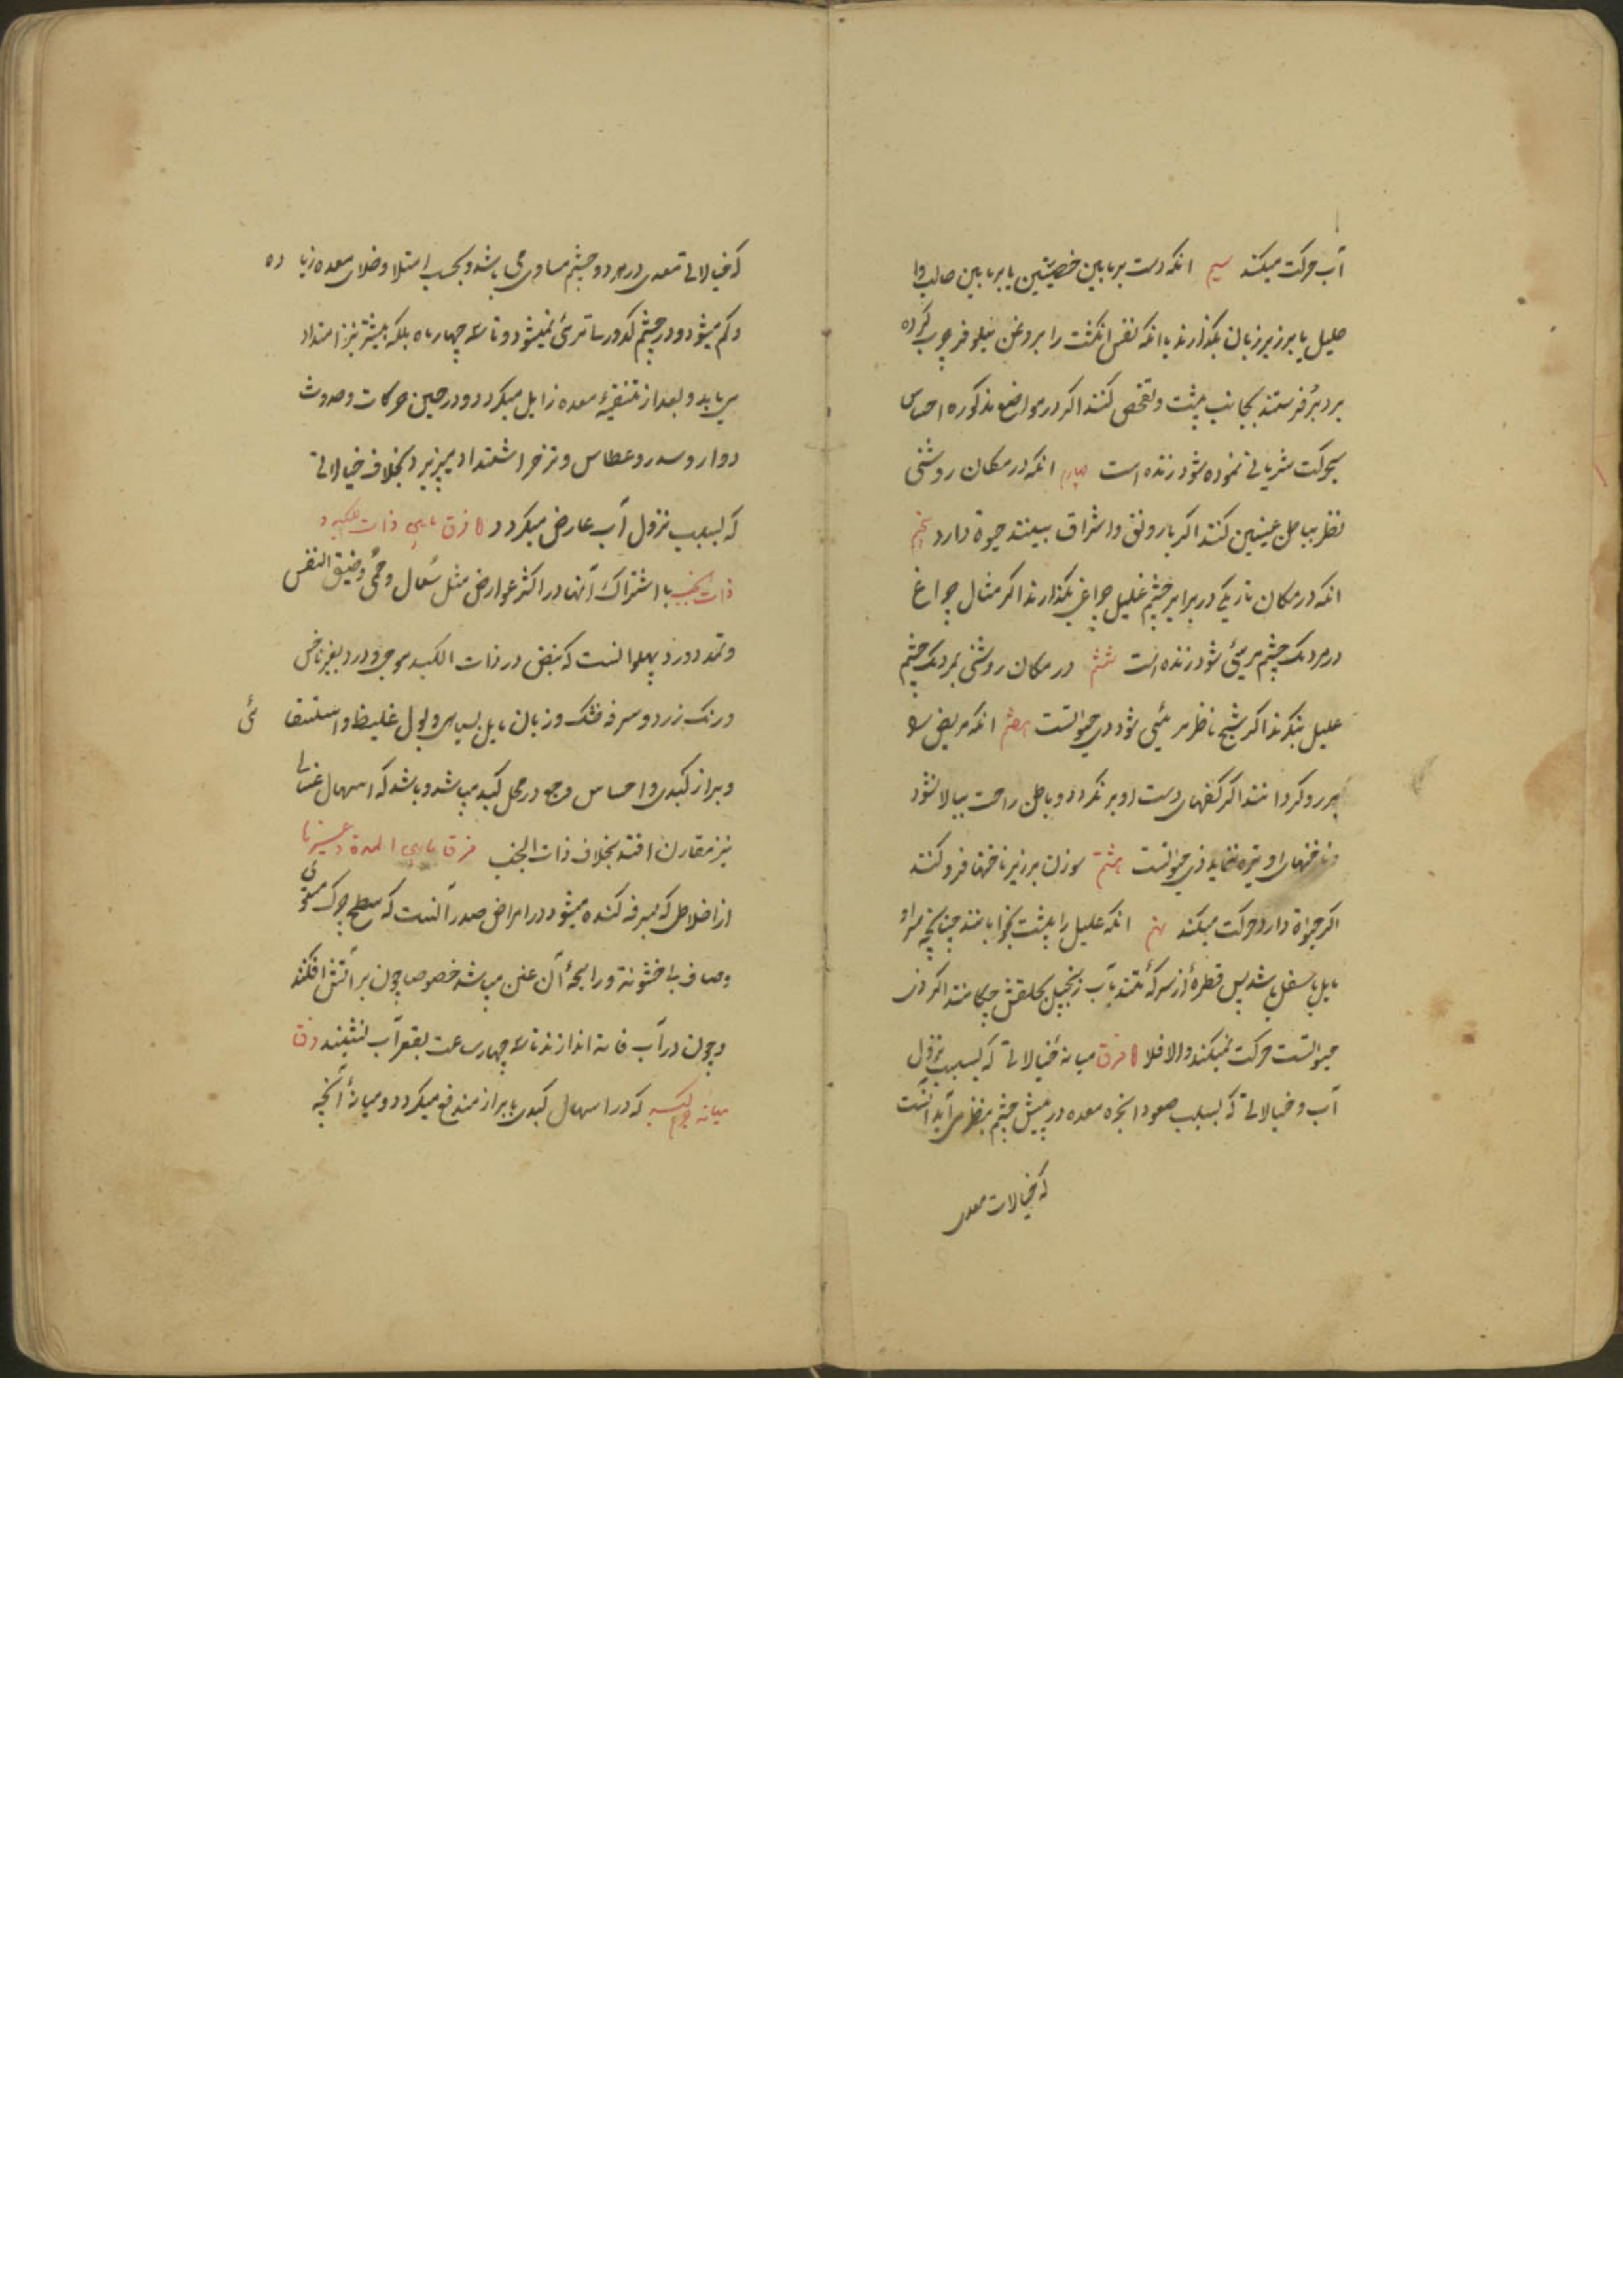 آب حرکت میکند سیم انکه دست بر مابین خصیتین یا بر مابین حالب و
حلیل یا بر زیر زبان بگذارند یا انکه نفس انکشت را بروغن نیلوفر چرب کرده
بر دبر فرستند بجانب پشت و تفحص کنند اکر در مواضع مذکوره احساس
بحرکت شریانی نموده شود زنده است چهارم انکه در مکان روشنی
نظر بباطن عینین کنند اکر با رونق و اشراق ببینند حیوة دارد پنجم
انکه در مکان تاریکی در برابر چشم علیل چراغی بگذارند اکر مثال چراغ
در مردمک چشم مرئی شود زنده است ششم در مکان روشنی بمردمک چشم
علیل بنکرند اکر شبح ناظر مرئی شود ذی حیوتست هفتم انکه مریض را
بر رو کردانند اکر کفهای دست او بر نکردد و باطن راحت ببالا نشود
و ناخنهای او تیره ننماید ذی حیوتست هشتم سوزن بر زیر ناخنها فرو کنند
اکر حیوة دارد حرکت میکند نهم انکه علیل را بپشت بخوابانند چنانچه سر او
مایل باسفل باشد پس قطرهٔ از سرکهٔ تند یا آب زنجبیل بحلقش چکانند اکر ذی
حیوتست حرکت میکند والا فلا فرق میانهٔ خیالاتی که بسبب نزول
آب و خیالاتی که بسبب صعود ابخره معده در پیش چشم بنظر می آید آنست
که خیالات معدی
که خیالاتی معدی در هر دو چشم مساوی می باشد و بحسب امتلا و خلای معده زیاده
و کم میشود و در چشم کدورتی مرئی نمیشود و تا سه چهار ماه بلکه بیشتر نیز امتداد
می یابد و بعد از تنقیهٔ معده زایل میکردد و در حین حرکات و حدوث
دوار و سدر و عطاس و تزحر اشتداد میپزیرد بخلاف خیالاتی
که بسبب نزول آب عارض میکردد فرق مابین ذات الکبد و
ذات الجنب با اشتراک آنها در اکثر عوارض مثل سعال و حمی و ضیق النفس
و تمدد و درد پهلو انست که نبض در ذات الکبد موجی و درد بغیر ناخس
و رنک زرد و سرفه خشک و زبان مایل بسیاهی و بول غلیظ و استسقائی
و براز کبدی و احساس وجع در محل کبد میباشد و باشد که اسهال غسالی
نیز مقارن افتد بخلاف ذات الجنب فرق مابین المدة و غیرها
از اخلاطی که بسرفه کنده میشود در امراض صدر آنست که سطح چرک مستوی
و صاف بی خشونة و رایحهٔ آن عفن میباشد خصوصا چون بر آتش افکنند
و چون در آب اندازند تا سه چهار ساعت بقعر آب نشیند فرق
میانه جرم کبد که در اسهال کبدی با براز مندفع میکردد و میانهٔ آنچه